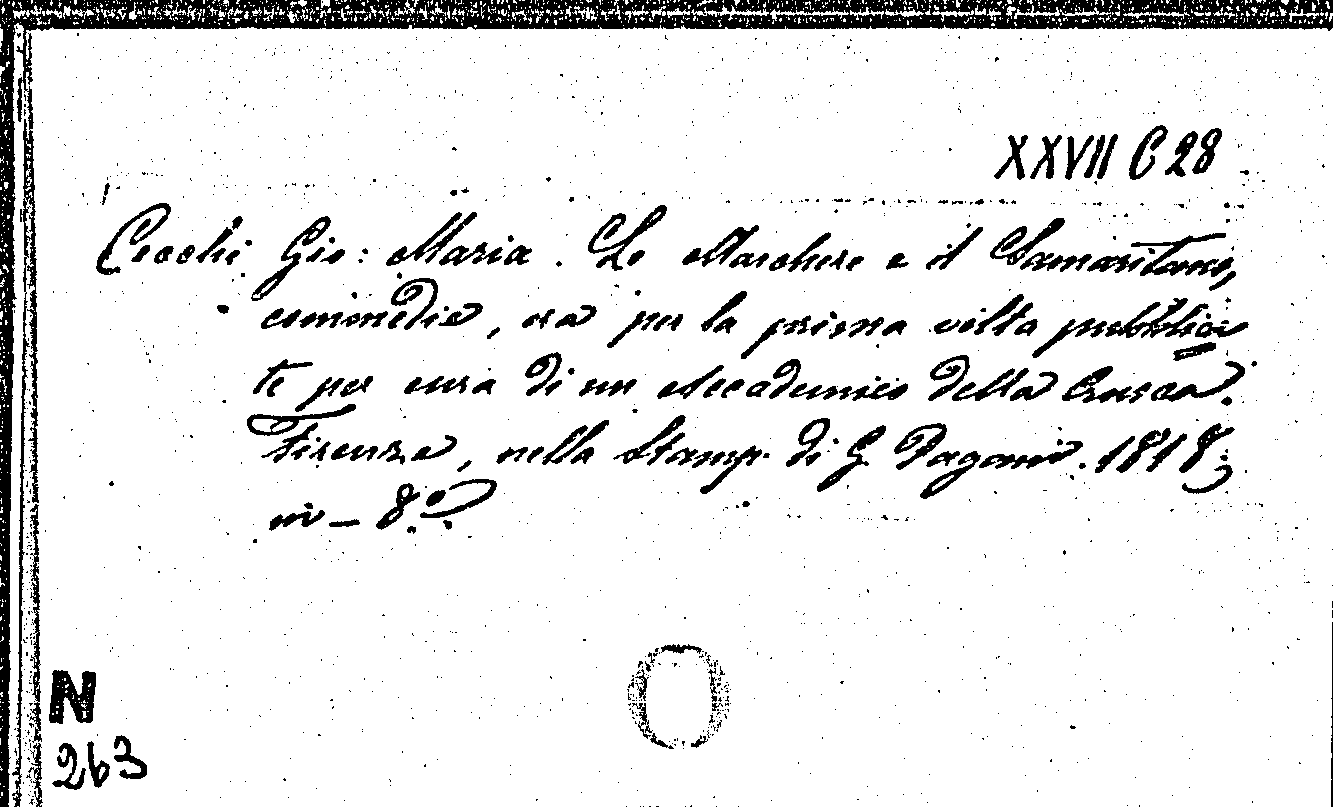 XXVII C 28
Cecchi Gio: Maria. Le Maschere e il Samaritano,
commedie, ora per la prima volta pubblica
te per cura di un Accademico della Crusca.
Firenze, nella Stamp. di G. Pagani. 1818;
in-8.º.
N
263